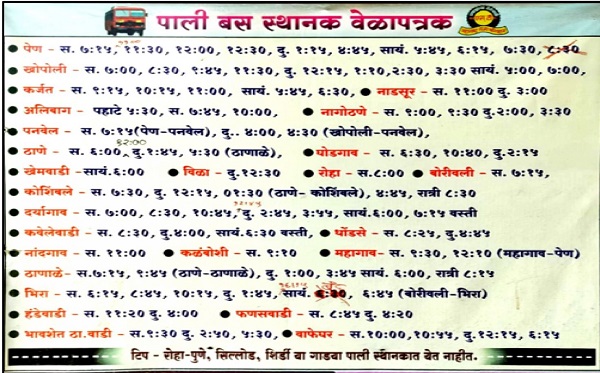 पाली बस स्थानक वेळापत्रक
पेण - स. ७:१५, ११:३०, १२:००, १२:३०, दु. १:१५, ४:४५, सायं. ५:४५, ६:१५, ७:३०, ८:३०
खोपोली - स. ७:००, ८:३०, ९:४५, ११:३०, दु. १२:१५, १:१०,२:३०, ३:३० सायं. ५:००, ७:००,
कर्जत - स. ९:१५, १०:१५, ११:००, सायं. ५:४५, ६:३०, नाडसूर - स. ११:०० दु. ३:००
अलिबाग - पहाटे ५:३०, स. ७:४५, १०:००, नागोठणे - स. ९:००, ९:३० दु.२:००, ३:३०
पनवेल - स. ७:१५(पेण-पनवेल), दु.. ४:००, ४:३० (खोपोली-पनवेल),
ठाणे - स. ६:००, १२:०० दु.१:४५, ५:३० (ठाणाळे), घोडगाव - स. ६:३०, १०:४०, दु.२:१५
खेमवाडी -सायं.६:०० विळा - दु.१२:३० रोहा - स.८:०० बोरीवली - स. ७:१५,
कोशिंबले - स. ७:३०, दु. १२:१५, ०१:३० (ठाणे- कोशिंबले), ४:४५, रात्री ८:३०
दर्यागाव - स. ७:००, ८:३०, १०:४५, दु. २:४५, ३:५५, सायं.६:००, ७:१५ वस्ती
कवेलेवाडी - स. ८:३०, दु.४:००, सायं.६:३० वस्ती, धोंडसे - स. ८:२५, दु.४:४५
नांदगाव - स. ११:०० कळंबोशी - स. ९:१० महागाव - स. ९:३०, १२:१० (महागाव-पेण)
ठाणाळे- स.७:१५, ९:४५ (ठाणे-ठाणाळे), दु. १:००, ३:४५ सायं. ६:००, रात्री ८:१५
भिरा - स. ६:१५, ८:४५, १०:१५, दु. १:४५, सायं. ६:३०, ६:४५ (बोरीवली-भिरा)
हंडेवाडी - स. ११:२० दु. ४:०० फणसवाडी - स. ८:४५ दु. ४:२०
भावशेत ठा.वाडी - स.९:३० दु. २:५०, ५:३०, वाफेघर - स.१०:००,१०:५५, दु.१२:१५, ६:१५
टिप - रोहा-पुणे, सिल्लोड, शिर्डी या गाडया पाली स्थानकात येत नाहीत.